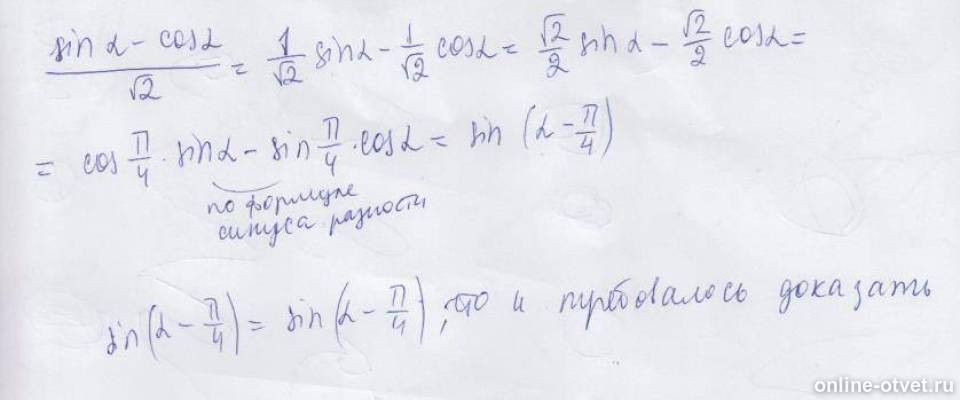 (sin α - cos α)/√2 = 1/√2 sin α - 1/√2 cos α = √2/2 sin α - √2/2 cos α =
= cos π/4 · sin α - sin π/4 · cos α = sin (α - π/4)
по формуле
синуса разности
sin(α - π/4) = sin(α - π/4), что и требовалось доказать
online-otvet.ru